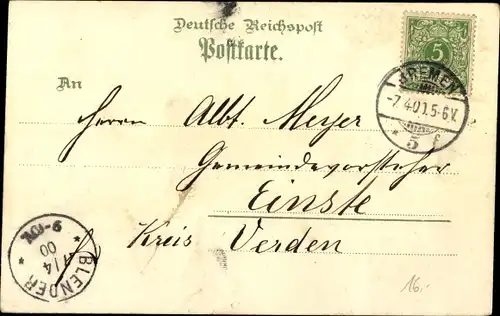 Deutsche Reichspost
Postkarte.
5
BREMEN
-7.4.00.5-6V.
* 5 f
An
Herrn Albt. Meyer
Gemeindevorsteher
Einste
Kreis Verden
BLENDER
7/4
00
* *
16.-